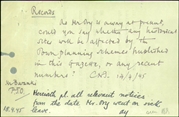 Records
As Mr Ory is away at present,
could you say whether any historical
sites will be affected by the
Town planning schemes published
in this Gazette, or any recent
numbers? C.N.B. 14/9/45
Herewith pl. all relevant notices
from the date Mr. Ory went on sick
leave.
18.9.45